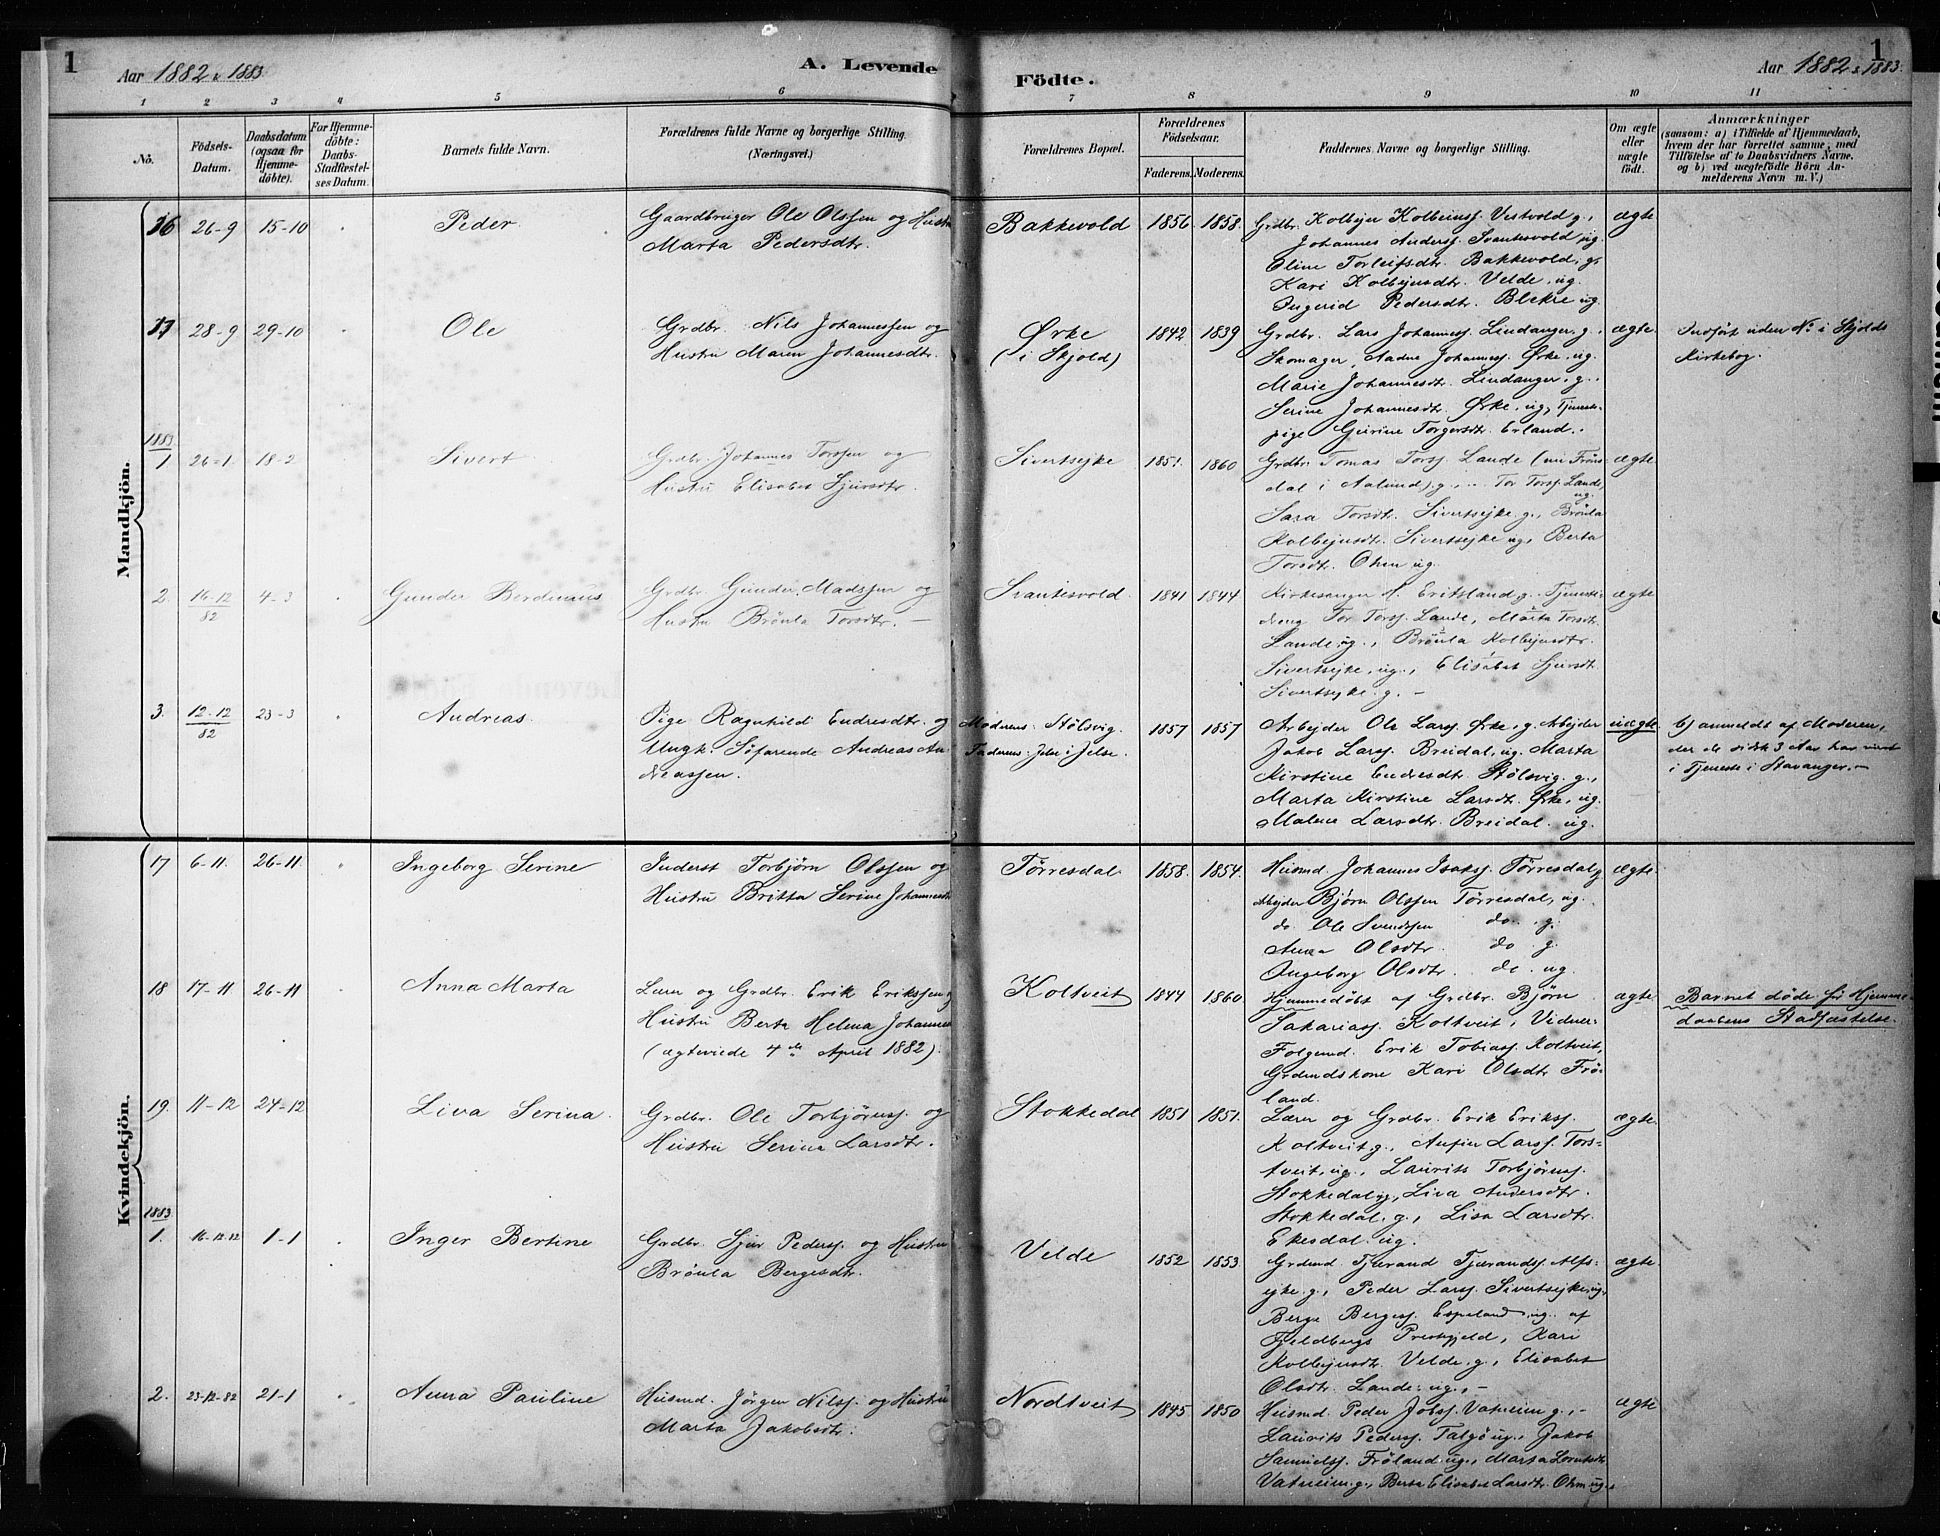 1
Aar 1882 & 1883
A. Levende
Födte.
Aar 1882 & 1883.
1
1 2 3 4 5 6 7 8 9 10 11
No.
Födsels-
Datum.
Daabsdatum
(ogsaa for
Hjemme-
döbte).
For Hjemme-
döbte:
Daabs-
Stadfæstel-
ses Datum.
Barnets fulde Navn.
Forældrenes fulde Navne og borgerlige Stilling.
(Næringsvei.)
Forældrenes Bopæl.
Forældrenes
Födselsaar.
Faderens. Moderens.
Faddernes Navne og borgerlige Stilling.
Om ægte
eller
uægte
födt.
Anmærkninger
(saasom: a) i Tilfælde af Hjemmedaab,
hvem der har forrettet samme, med
Tilföielse af to Daabsvidners Navne,
og b) ved uægtefödte Börn An-
melderens Navn m. V.)
Mandkjön.
16 26-9 15-10 Peder
Gaardbruger Ole Olssen og Hustru
Marta Pedersdtr.
Bakkevold 1856 1858.
Grdbr. Kolbejn Kolbeinss. Vestvold g.,
Johannes Anderss. Svantesvold, ug.
Eline Torleifsdtr. Bakkevold, g.
Kari Kolbejnsdtr. Velde, ug.
Ingerid Pedersdtr. Blekre ug.
ægte
17 28-9 29-10 Ole
Grdbr. Nils Johannessen og
Hustru Maren Johannesdtr.
Ørke
(i Skjold)
1842 1839
Grdbr. Lars Johanness. Lindanger, g.,
Skomager, Aadne Johanness. Ørke, ug.
Marie Johannesdtr. Lindanger, g.,
Serine Johannesdtr. Ørke, ug, Tjeneste-
pige Geirine Torgersdtr. Erland.
ægte.
Indført uden No i Skjolds
Kirkebog.
1883
1 26-1. 18-2 Sivert
Grdbr. Johannes Torssen og
Hustru Elisabet Sjursdtr.
Sivertsejke 1851. 1860
Grdbr. Tomas Torss. Lande (nu Frøns-
dal i Aalund) g., Tor Torss. Lande,
ug.
Sara Torsdtr. Sivertsejke g., Brønla
Kolbejnsdtr. Sivertsejke ug, Berta
Torsdtr. Ohm ug.
ægte
2. 16-12
82
4-3 Gunder Berdinius
Grdbr. Gunder Madssen og
Hustru Brønla Torsdtr. —
Svantesvold. 1841 1844
Kirkesanger Eritsland g. Tjeneste-
dreng Tor Torss. Lande, Marta Torsdtr.
Lande ug., Brønla Kolbejnsdtr.
Sivertsejke, ug., Elisabet Sjursdtr.
Sivertsejke g. —
ægte
3. 12-12
82
23-3 Andreas.
Pige Ragnhild Endresdtr. og
Ungk. Søfarende Andreas An-
dreassen.
Moderens: Stølsvig.
Faderens: Jelse i Jelse.
1857 1857
Arbejder Ole Larss. Ørke, g. Arbejder
Jakob Larss. Breidal, ug. Marta
Kirstine Endresdtr. Stølsvig. g.,
Marta Kirstine Larsdtr. Ørke, ug.
Malene Larsdtr. Breidal. ug.
uægte.
b) anmeldt af Moderen,
der de sidste 3 Aar har været
i Tjeneste i Stavanger. —
Kvindekjön.
17 6-11. 26-11 Ingeborg Serine
Inderst Torbjørn Olssen og
Hustru Britta Serine Johannesdtr
Tørresdal 1858. 1854.
Husmd. Johannes Isakss. Tørresdal g
Arbejder Bjørn Olssen Tørresdal, ug.
do Ole Svendsen do. g.
Anna Olsdtr. do g.
Ingeborg Olsdtr. do. ug.
ægte.
18 17-11. 26-11 Anna Marta
Lærer og Grdbr. Erik Erikssen og
Hustru Berta Helena Johannes
(ægteviede 4de April 1882).
Koltveit 1844 1860.
Hjemmedøbt af Grdbr. Bjørn
Sakariass. Koltveit, Vidner:
Folgemd. Erik Tobiass. Koltveit,
Grdmdskone Kari Olsdtr Frø-
land.
ægte.
Barnet døde før Hjemme-
daabens Stadfæstelse.
19. 11-12 24-12 Liva Serina.
Grdbr. Ole Torbjørnss. og
Hustru Serina Larsdtr.
Stokkedal 1851 1851.
Lærer og Grdbr. Erik Erikss.
Koltveit g., Anfin Larss. Tors-
tveit, ug., Laurits Torbjørnss.
Stokkedal g., Liva Andersdtr.
Stokkedal. g., Lisa Larsdtr.
Ekesdal. ug.
ægte.
1883
1. 16-12-82 1-1 Inger Bertine
Grdbr. Sjur Pederss. og Hustru
Brønla Bergesdtr.
Velde 1852 1853.
Grdmd. Tjerand Tjerandss. Alfs-
ejke. g., Peder Larss. Sivertsejke, ug.,
Berge Bergess. Espeland ug. af
Fjeldbergs Prestgjeld, Kari
Kolbejnsdtr. Velde. g., Elisabet
Olsdtr. Lande, ug., —
ægte.
2. 23-12-82 21-1 Anna Pauline
Husmd. Jørgen Nilss. og Hustru
Marta Jakobsdtr.
Nordtveit 1845 1850
Husmd. Peder Jobss. Vatneim g., —
Laurits Pederss. Talgø ug., Jakob
Samuelss. Frøland ug., Marta
Vatneim g., Berta Elisabet Larsdtr. Ohm ug.
ægte